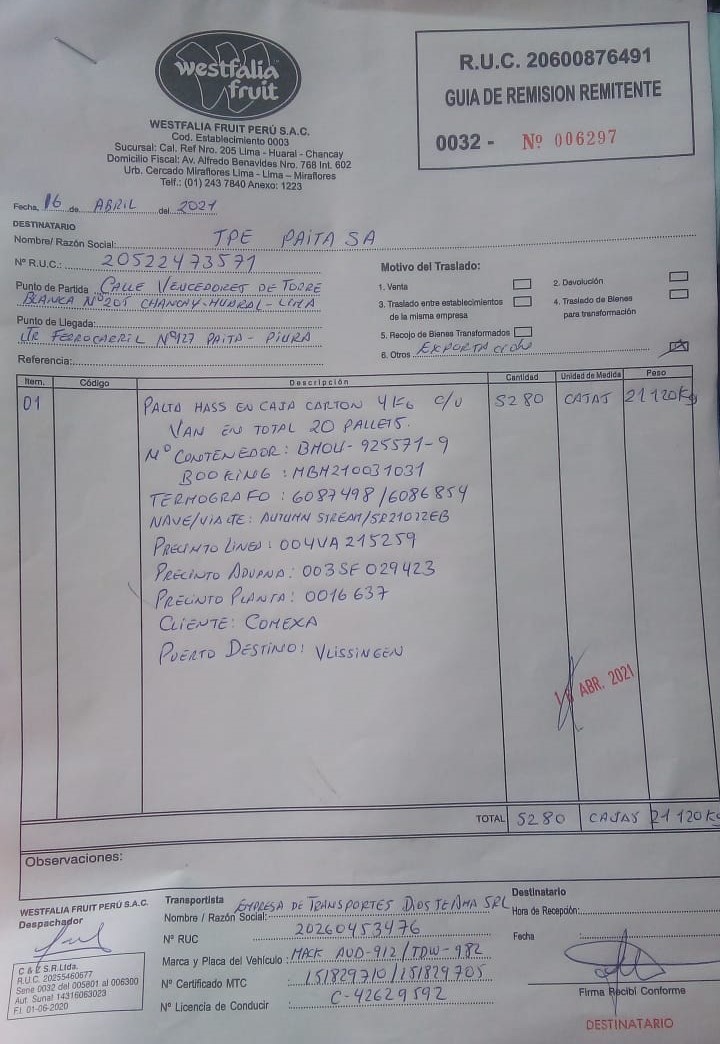 westfalia
fruit
WESTFALIA FRUIT PERÚ S.A.C.
Cod. Establecimiento 0003
Sucursal: Cal. Ref Nro. 205 Lima - Huaral - Chancay
Domicilio Fiscal: Av. Alfredo Benavides Nro. 768 Int. 602
Urb. Cercado Miraflores Lima - Lima – Miraflores
Telf.: (01) 243 7840 Anexo: 1223
R.U.C. 20600876491
GUIA DE REMISION REMITENTE
0032 - Nº 006297
Fecha, 16 de ABRIL del 2021
DESTINATARIO
Nombre/ Razón Social: TPE PAITA SA
Nº R.U.C.: 20522473571
Punto de Partida CALLE VENCEDORES DE TORRE
BLANCA Nº201 CHANCAY-HUARAL-LIMA
Punto de Llegada:
JR FERROCARRIL Nº127 PAITA - PIURA
Referencia:
Motivo del Traslado:
1. Venta
2. Devolución
3. Traslado entre establecimientos
de la misma empresa
4. Traslado de Bienes
para transformación
5. Recojo de Bienes Transformados
6. Otros EXPORTACION
Item. Código Descripción Cantidad Unidad de Medida Peso
01 PALTA HASS EN CAJA CARTON 4KG C/U 5280 CAJAS 21120Kg
VAN EN TOTAL 20 PALLETS.
Nº CONTENEDOR: BMOU-925571-9
BOOKING: MBM210031031
TERMOGRAFO: 6087498/6086854
NAVE/VIAJE: AUTUMN STREAM/SR21022EB
PRECINTO LINEA: 004VA215259
PRECINTO ADUANA: 003SF029423
PRECINTO PLANTA: 0016637
CLIENTE: COMEXA
PUERTO DESTINO: VLISSINGEN
ABR. 2021
TOTAL 5280 CAJAS 21120Kg
Observaciones:
WESTFALIA FRUIT PERÚ S.A.C.
Despachador
C & E S.R.Ltda.
R.U.C. 20255460677
Serie 0032 del 005801 al 006300
Aut. Sunat 14316063023
F.I. 01-06-2020
Transportista EMPRESA DE TRANSPORTES DIOS TE AMA SRL
Nombre / Razón Social:
Nº RUC 20260453476
Marca y Placa del Vehículo: MACK AUD-912/TDW-982
Nº Certificado MTC 151829710/151829705
Nº Licencia de Conducir C-42629592
Destinatario
Hora de Recepción:
Fecha
Firma Recibí Conforme
DESTINATARIO